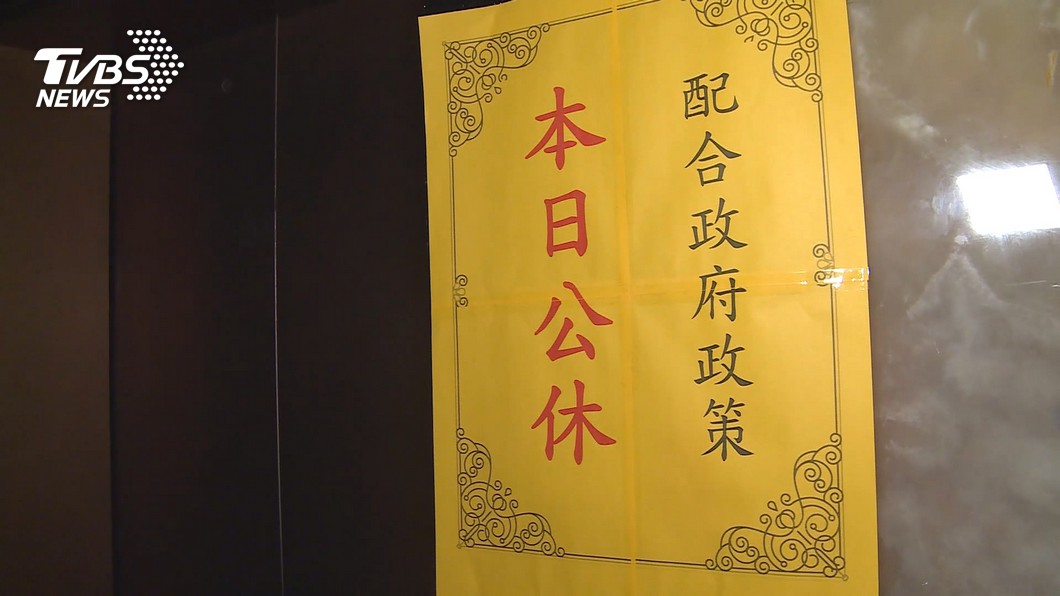 TVBS
NEWS
配合政府政策
本日公休